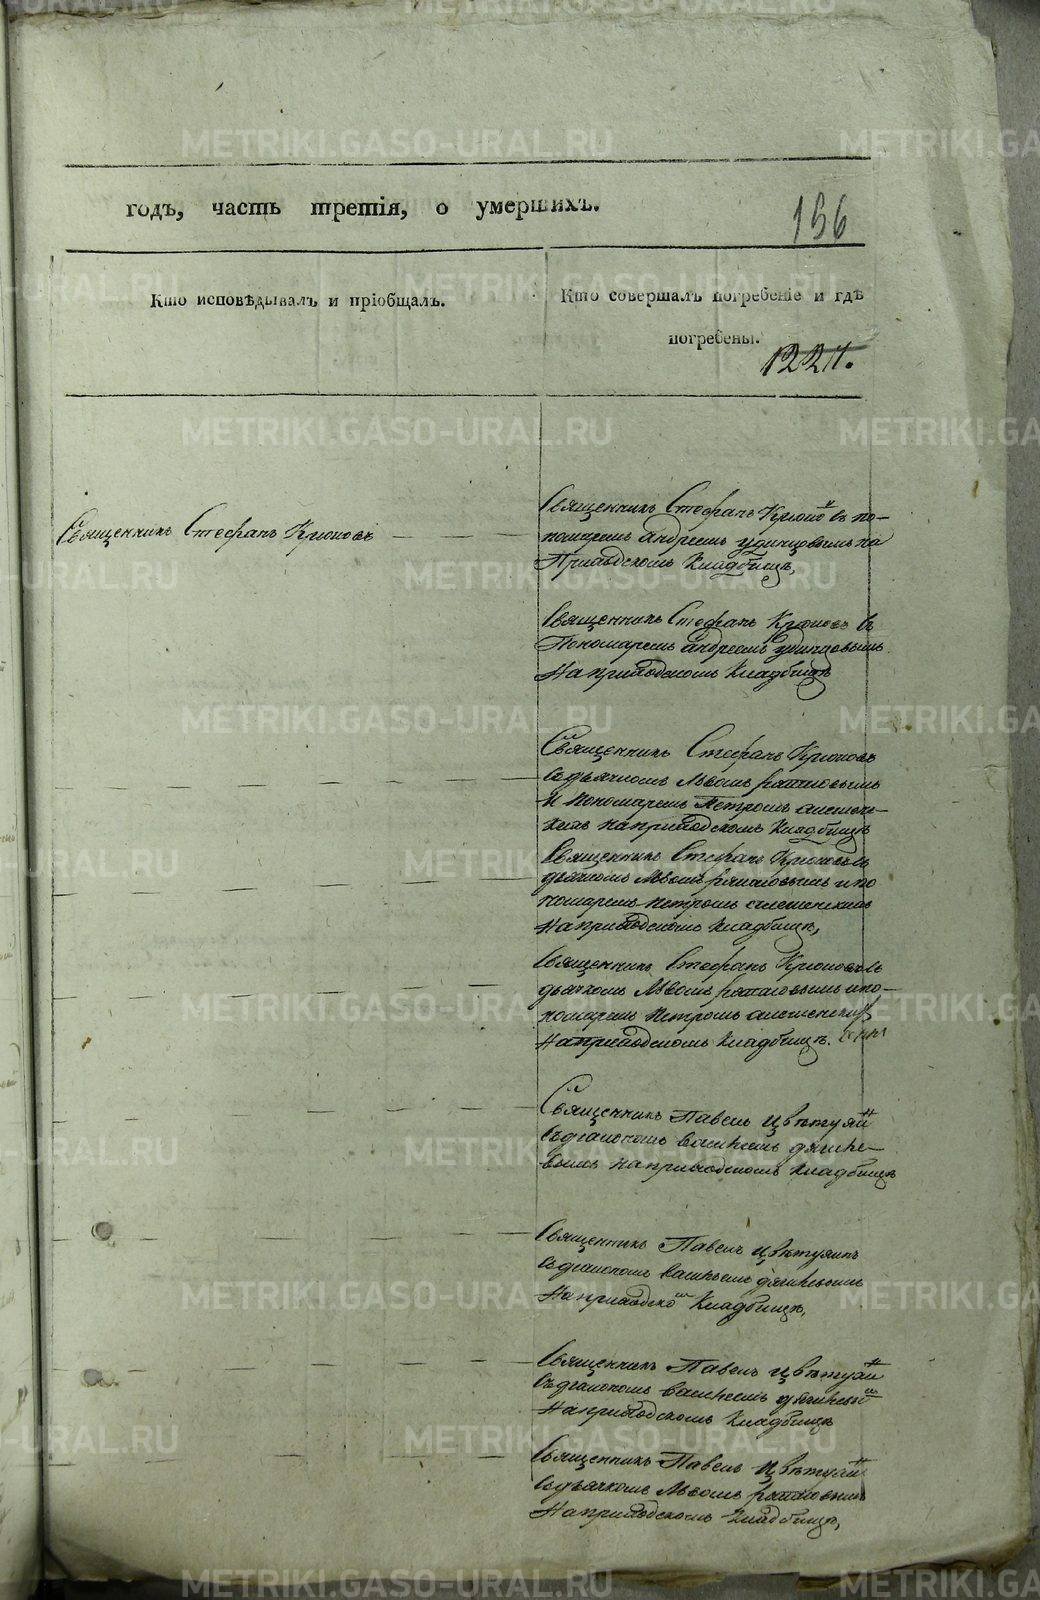 METRIKI.GASO-URAL.RU
годъ, часть третія, о умершихъ.
156
Кто исповѣдывалъ и пріобщалъ.
Кто совершалъ погребеніе и гдѣ
погребены.
1221.
Священникъ Стефанъ Крюковъ
Священникъ Стефанъ Крюковъ съ по-
номаремъ Андреемъ Удинцовымъ на
Приходскомъ Кладбищѣ,
Священникъ Стефанъ Крюковъ съ
Пономаремъ Андреемъ Удинцовымъ
на приходскомъ Кладбищѣ
Священникъ Стефанъ Крюковъ
съ дьячкомъ Львомъ
и пономаремъ Петромъ
на приходскомъ Кладбищѣ
Священникъ Стефанъ Крюковъ съ
дьячкомъ Львомъ и по
номаремъ Петромъ
на приходскомъ Кладбищѣ,
Священникъ Стефанъ Крюковъ съ
дьячкомъ Львомъ и по-
номаремъ Петромъ
на приходскомъ Кладбищѣ.
Священникъ Павелъ
съ діакономъ Васильемъ
на приходскомъ Кладбищѣ
Священникъ Павелъ
съ діакономъ Васильемъ
на приходскомъ Кладбищѣ,
Священникъ Павелъ
съ діакономъ Васильемъ
на приходскомъ Кладбищѣ
Священникъ Павелъ
съ дьячкомъ Львомъ
на приходскомъ Кладбищѣ,